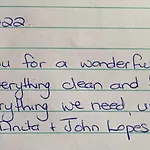 022.
ou for a wonderful
everything clean and
rything we need, u
Anita + John Lopes